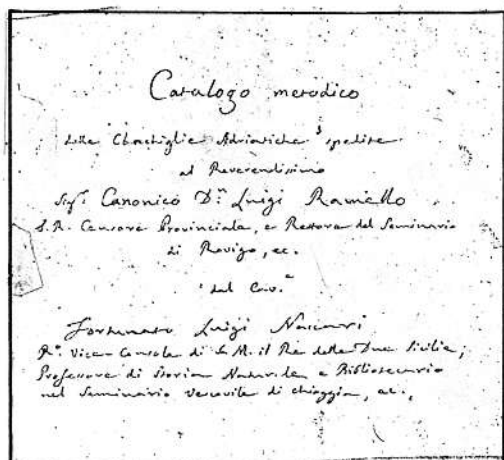 Catalogo metodico
delle Conchiglie Adriatiche spedite
al Reverendissimo
Sigr. Canonico Dn. Luigi Ramello
I. R. Censore Provinciale, e Rettore del Seminario
di Rovigo, ec.
dal Cav.e
Fortunato Luigi Naccari
Rº. Vice-Console di S. M. il Re delle Due Sicilie;
Professore di Storia Naturale e Bibliotecario
nel Seminario Vescovile di Chioggia, ec.,